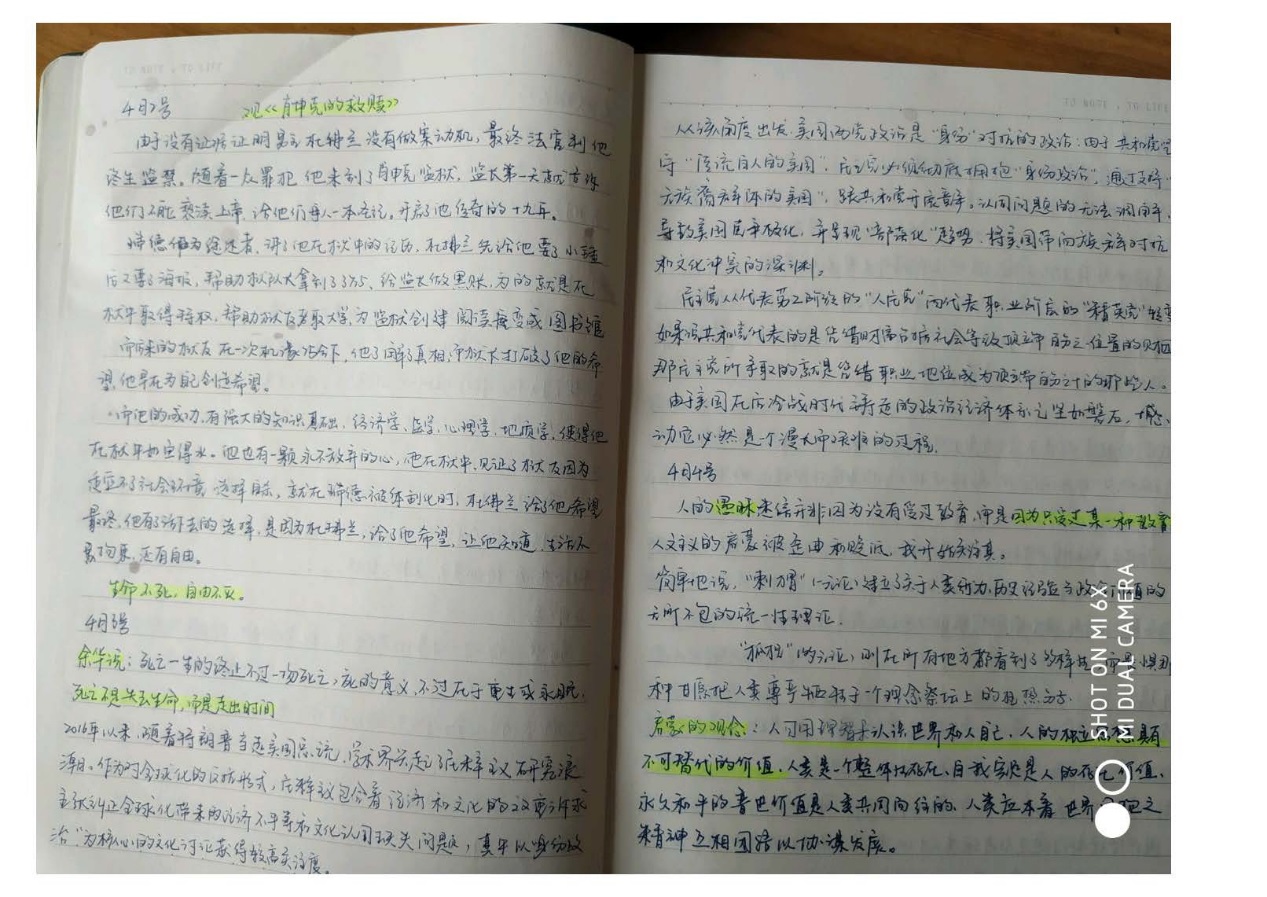 4月2号 观《肖申克的救赎》
由于没有证据证明男主杜佛兰没有做案动机,最终法官判他
终生监禁。随着一众罪犯他来到了肖申克监狱,监长第一天就告诉
他们不能亵渎上帝,给他们每人一本圣经,开启了他传奇的十九年。
瑞德作为叙述者,讲了他在狱中的经历,杜佛兰先给他要了小锤
后又要了海报,帮助狱队大拿到了3万5、给监长做黑账,为的就是在
狱中取得特权,帮助狱友考取大学,为监狱创建阅读 变成图书馆
而来的狱友在一次机缘 下,他了解了真相,而狱长打破了他的希
望,他早在为自己创造希望。
而他的成功,有强大的知识基础,经济学,监学,心理学,地质学,使得他
在狱中如鱼得水。他也有一颗永不放弃的心,他在狱中,见证了狱友因为
适应不了社会环境选择自杀,就在瑞德被体制化时,杜佛兰给了他希望
最终,他有了活下去的选择,是因为杜佛兰,给了他希望,让他知道,生活不
是拘束,还有自由。
生命不死,自由不灭。
4月3号
余华说:死亡一生的终止不过一场死亡,死的意义,不过在于重生或永眠.
死亡不是失去生命,而是走出时间
2016年以来,随着特朗普当选美国总统,学术界兴起了民粹主义研究浪
潮。作为对全球化的反抗形式,民粹主义包含着经济和文化的双重诉求
主张纠正全球化带来的经济不平等和文化认同缺失问题,其中以"身份政
治"为核心的文化讨论获得较高关注度。
从该角度出发,美国两党政治是"身份"对抗的政治,由于共和党坚
守"主流白人的美国",民主党必须彻底拥抱"身份政治",通过支持"
去族裔群体的美国",跟共和党开展竞争,认同问题的无法调解,
导致美国民主极化,并呈现"部落化"趋势,将美国带向族裔对抗
和文化冲突的深渊。
民主党从代表第二阶级的"人民党"向代表职业阶层的"精英党"转变
如果说共和党代表的是凭借财富占据社会等级顶端百分之一位置的财阀
那民主党所争取的就是凭借职业地位成为顶端百分之十的那些人。
由于美国在后冷战时代铸造的政治经济体系已坚如磐石,撼
动它必然是个漫长而艰难的过程.
4月4号
人的愚昧迷信并非因为没有受过教育,而是因为只受过某一种教育
人文主义的启蒙被歪曲和贬低,我开始关注其。
简单地说,"刺猬"一元论,建立了关于人类行为,历史经验与政治价值的
无所不包的统一性理论.
"狐狸"的多元论,则在所有地方都看到了多样
种甘愿把人类尊严牺牲于一个理念祭坛上的狂热分子.
启蒙的观念:人可用理智去认识世界和人自己,人的独立思想具有
不可替代的价值,人类是一个整体的存在,自我实现是人的存在价值、
永久和平的普世价值是人类共同向往的,人类应本着世界公理之
精神互相团结以协谋发展。
SHOT ON MI 6X
MI DUAL CAMERA